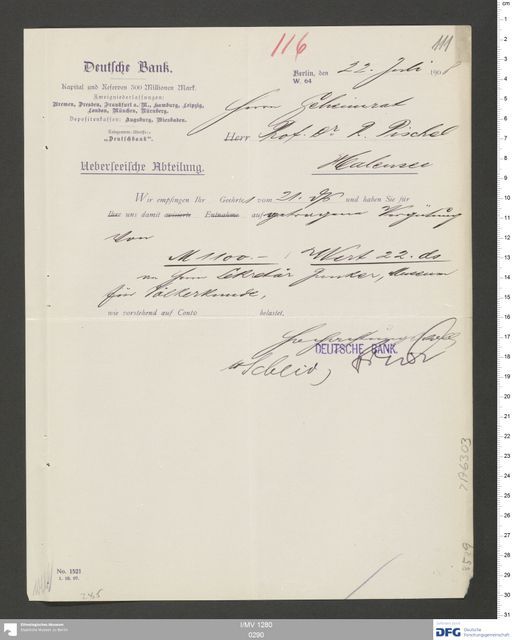 116
111
Deutsche Bank.
Kapital und Reserven 300 Millionen Mark.
Zweigniederlassungen:
Bremen, Dresden, Frankfurt a. M., Hamburg, Leipzig,
London, München, Nürnberg.
Depositenkassen: Augsburg, Wiesbaden.
Telegramm-Adresse:
„Deutschbank“.
Ueberseeische Abteilung.
Berlin, den 22. Juli 1908
W. 64
Herrn Geheimrat
Herr Prof. Dr. R. Pischel
Halensee
Wir empfingen Ihr Geehrtes vom 21. ds und haben Sie für
Ihre uns damit avisierte Entnahme aufgetragene Vergütung
von
M 1100.– Wert 22. ds
an Herrn Sekretär Junker, Museum
für Völkerkunde,
wie vorstehend auf Conto belastet.
Hochachtungsvoll
DEUTSCHE BANK.
No. 1521
1. 10. 07.
285
I/MV 1280
0290
Ethnologisches Museum
Staatliche Museen zu Berlin
DFG Deutsche
Forschungsgemeinschaft